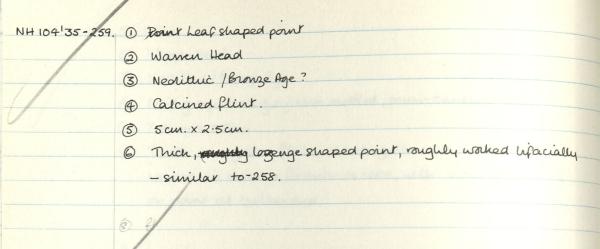 NH 104'35-259. ① Point Leaf shaped point
② Warren Head
③ Neolithic / Bronze Age?
④ Calcined flint.
⑤ 5cm. x 2.5cm.
⑥ Thick, roughly lozenge shaped point, roughly worked bifacially
- similar to -258.